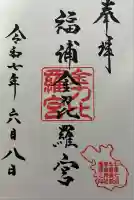 奉拝
福浦金刀比羅宮
金刀比
羅宮
令和七年六月八日